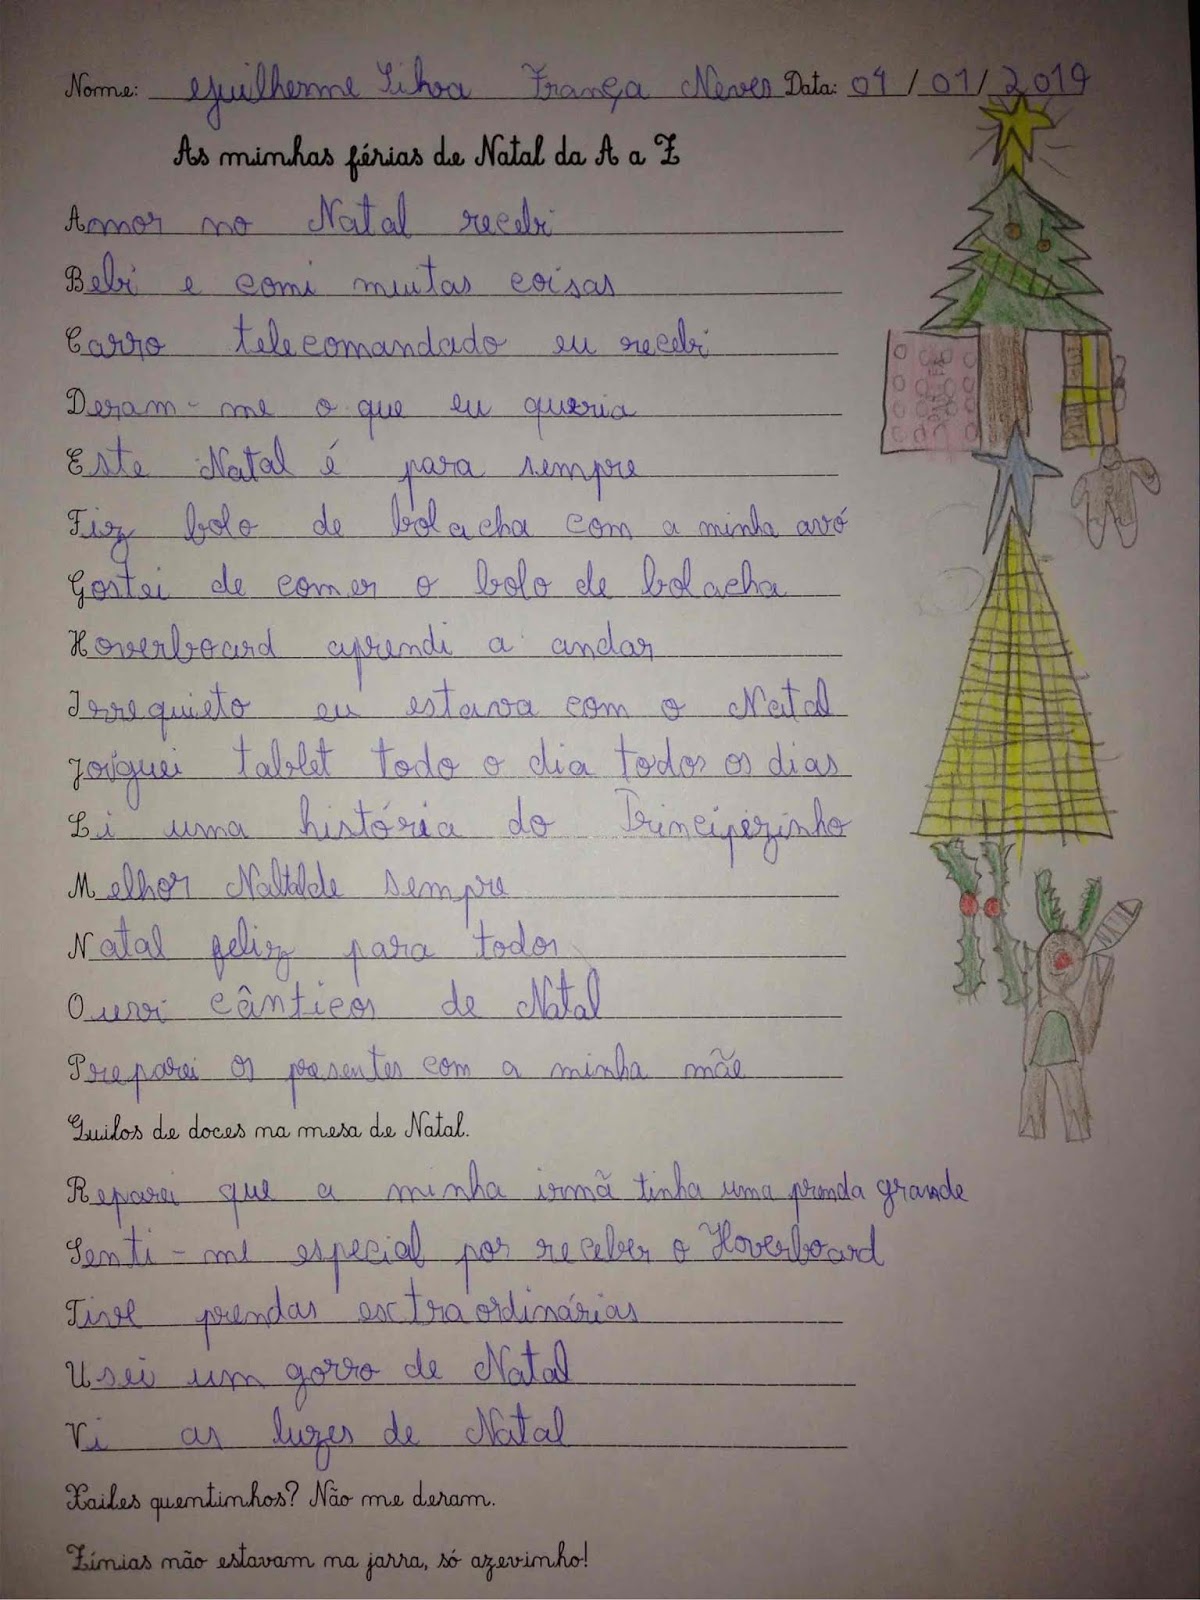 Nome: Guilherme Lihoa França Neves Data: 04/01/2019
As minhas férias de Natal da A a Z
Amor no Natal recebi
Bebi e comi muitas coisas
Carro telecomandado eu recebi
Deram-me o que eu queria
Este Natal é para sempre
Fiz bolo de bolacha com a minha avó
Gostei de comer o bolo de bolacha
Hoverboard aprendi a andar
Irrequieto eu estava com o Natal
Joguei tablet todo o dia todos os dias
Li uma história do Principezinho
Melhor Natal de sempre
Natal feliz para todos
Ouvi cânticos de Natal
Preparei os presentes com a minha mãe
Quilos de doces na mesa de Natal.
Reparei que a minha irmã tinha uma prenda grande
Senti-me especial por receber o Hoverboard
Tive prendas extraordinárias
Usei um gorro de Natal
Vi as luzes de Natal
Xailes quentinhos? Não me deram.
Zínias não estavam na jarra, só azevinho!